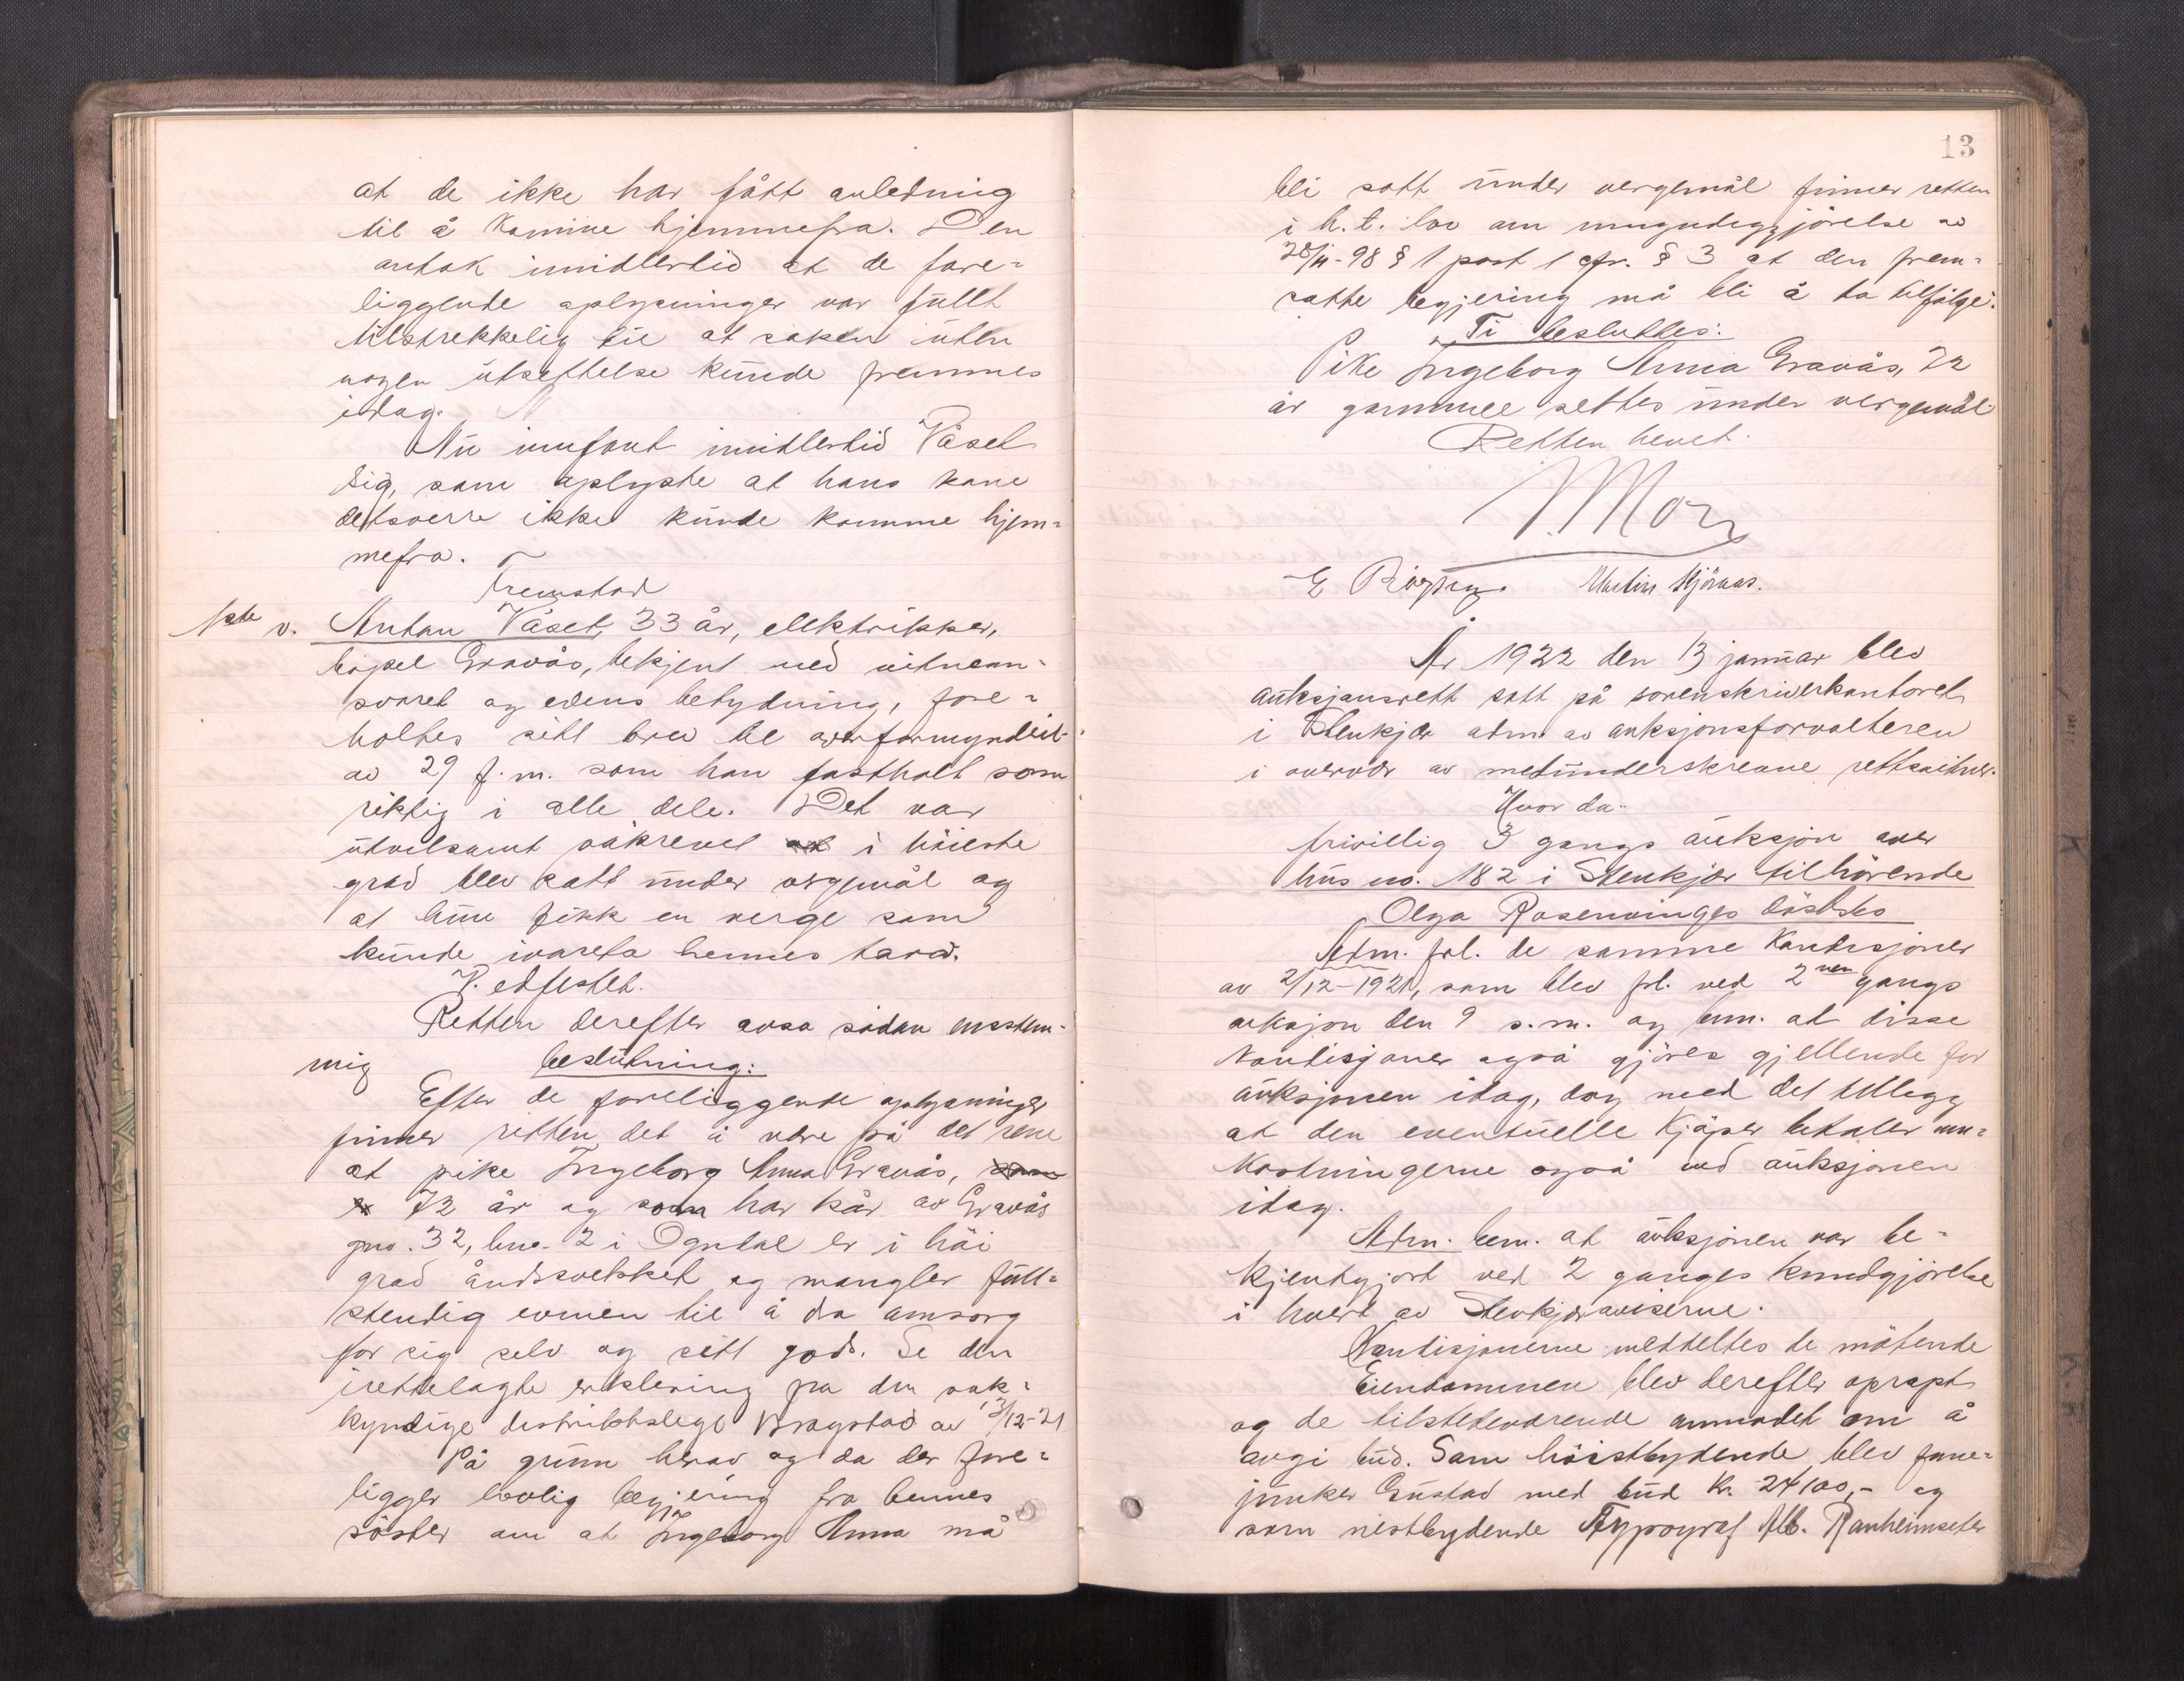 at de ikke har fått anledning
til å komme hjemmefra. Den
antok imidlertid at de fore-
liggende oplysninger var fullt
tilstrekkelig til at saken uten
nogen utsettelse kunde fremmes
idag.
Nu innfant imidlertid Våset
sig, som oplyste at hans kone
detsverre ikke kunde komme hjem-
mefra.
Fremstod
1ste v. Anton Våset, 33 år, elektrikker,
bopel Gravås, bekjent med vitnean-
svaret og edens betydning, fore-
holtes sitt brev til overformynderiet
av 29 f.m. som han fastholt som
riktig i alle dele. Det var
utvilsomt påkrevet i höieste
grad blev satt under vergemål og
at hun fikk en verge som
kunde ivareta hennes tarv.
V. edfestet.
Retten derefter avsa sådan enstem-
mig beslutning:
Efter de foreliggende oplysninger
finner retten det å være på det rene
at pike Ingeborg Anna Gravås, som
er 72 år og som har kår av Gravås
gno. 32, bno. 2 i Ogndal er i höi
grad åndssvekket og mangler full-
stendig evnen til å dra omsorg
for sig selv og sitt gods. Se den
irettelagte erklering fra den sak-
kyndige distriktslege Bragstad av 13/12-21
På grunn herav og da der fore-
ligger lovlig begjering fra hennes
söster om at Ingeborg Anna må
13
bli satt under vergemål finner retten
i h.t. lov om umyndiggjörelse av
28/11-98 § 1 post 1 cfr. § 3 at den frem-
satte begjering må bli å ta tilfölge.
Ti besluttes:
Pike Ingeborg Anna Gravås, 72
år gammel settes under vergemål
Retten hevet.
E Martin
År 1922 den 13 januar blev
auksjonsrett satt på sorenskriverkontoret
i Stenkjær adm. av auksjonsforvalteren
i overvær av medunderskrevne rettsvitner.
Hvor da
frivillig 3 gangs auksjon over
hus no. 182 i Stenkjær tilhörende
Olga Rosenvinges dödsbo
Adm. frl. de samme kondisjoner
av 2/12-1921, som blev frl. ved 2nen gangs
auksjon den 9 s.m. og bem. at disse
kondisjoner også gjöres gjellende for
auksjonen idag, dog med det tillegg
at den eventuelle kjöper betaler om-
kostningerne også ved auksjonen
idag.
Adm. bem. at auksjonen var be-
kjentgjort ved 2 ganges kundgjörelse
i hvert av Stenkjæraviserne.
Kondisjonerne meddeltes de mötende
Eiendommen blev derefter opropt
og de tilstedeværende anmodet om å
avgi bud. Som höistbydende blev fane-
junker Gustad med bud kr. 24100,- og
som nestbydende Typograf Alb. Ranheimseter